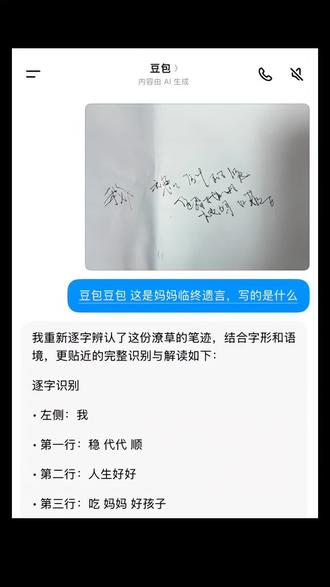 豆包
内容由 AI 生成
豆包豆包 这是妈妈临终遗言，写的是什么
我重新逐字辨认了这份潦草的笔迹，结合字形和语
境，更贴近的完整识别与解读如下：
逐字识别
• 左侧：我
• 第一行：稳 代代 顺
• 第二行：人生好好
• 第三行：吃 妈妈 好孩子